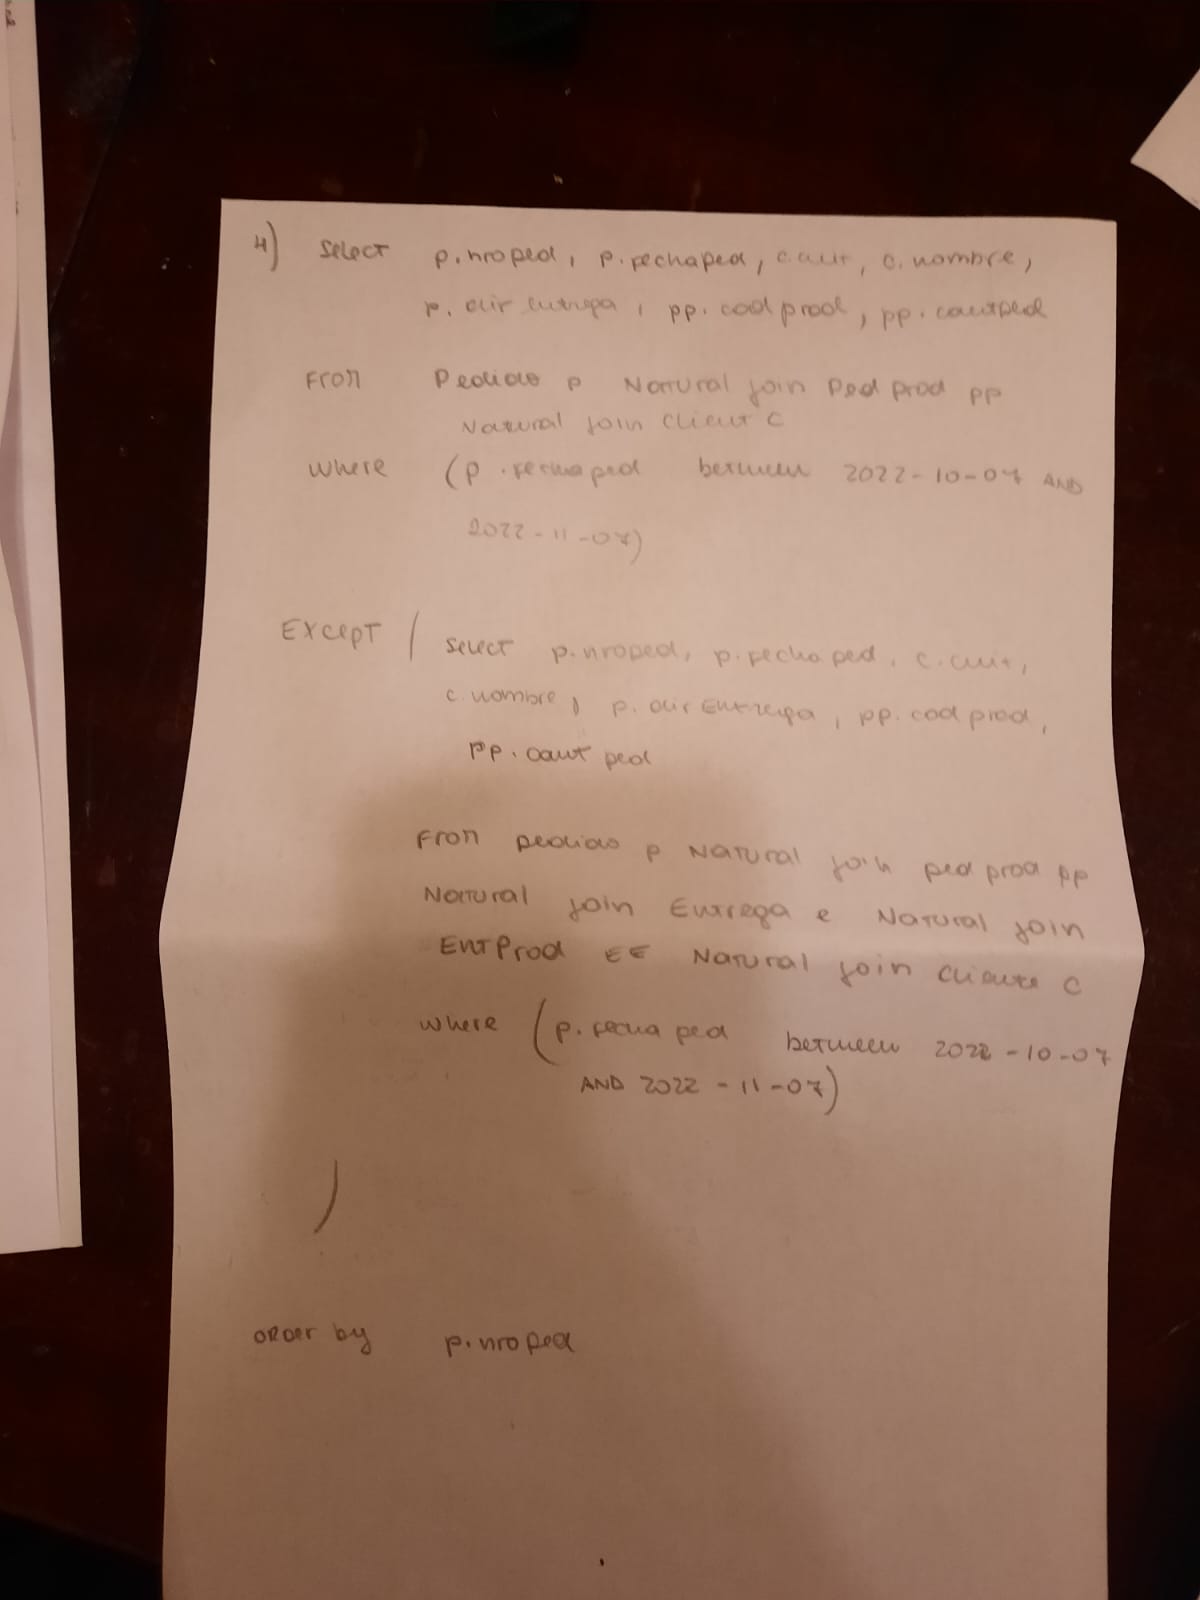 4) Select p.nroped, p.fechaped, c.cuit, c.nombre,
p.dirEntrega, pp.codprod, pp.cantped
FROM Pedidos p Natural join Ped prod pp
Natural join Client C
where (p.fechaped between 2022-10-07 AND
2022-11-07)
EXCEPT ( select p.nroped, p.fecha ped, c.cuit,
c.nombre, p.dirEntrega, pp.cod prod,
pp.cant ped
FROM pedidos p Natural join ped prod pp
Natural join Entrega e Natural join
EntProd EE Natural join cliente C
where (p.fecha ped between 2022-10-07
AND 2022-11-07)
)
order by p.nroped